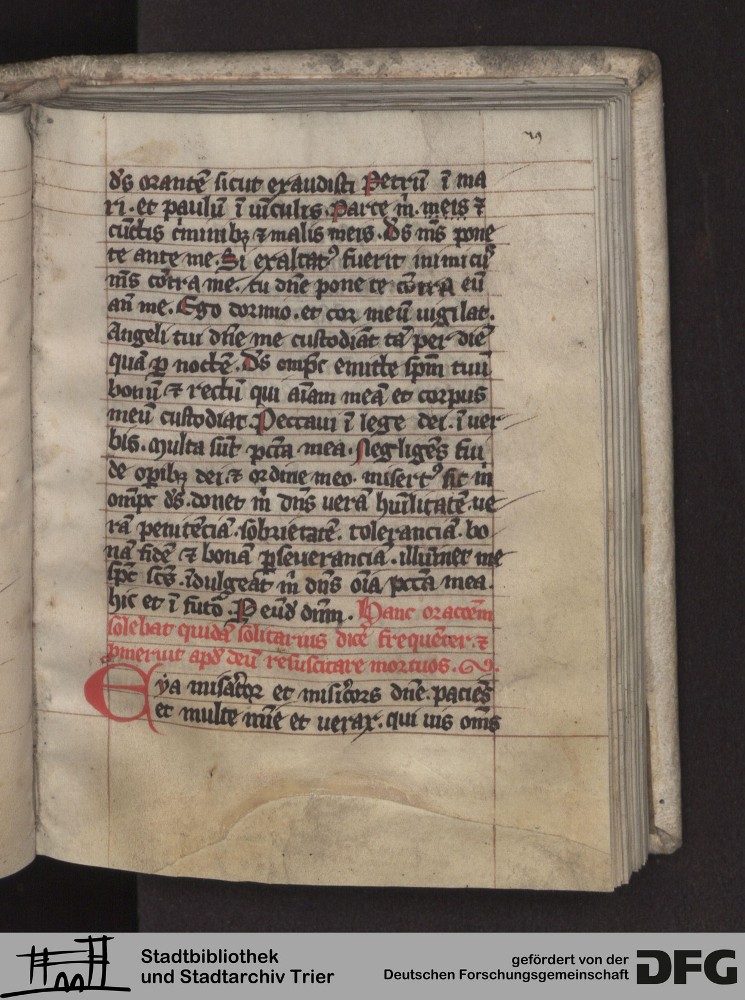 d̄s orantē sicut exaudisti Petrū ī ma
ri. et paulū ī uīculis. Parce m̄. meis ⁊
cūctis c̄minibꝫ ⁊ malis meis. D̄s m̄s pone
te ante me. Si exaltatꝰ fuerit inimicꝰ
m̄s cōtra me. tu dn̄e pone te cōtra eū
an̄ me. Ego dormio. et cor meū uigilat.
Angeli tui dn̄e me custodiāt tā per diē
quā ꝑ noctē. D̄s omp̄c emitte sp̄m tuū
bonū ⁊ rectū qui aīam meā et corpus
meū custodiat. Peccaui ī lege dei. ī uer
bis. Multa sūt pc̄ta mea. Negligēs fui
de oꝑibꝫ dei. ⁊ ordine meo. misertꝰ sit m̄
omīpc d̄s. donet m̄ dn̄s uerā hūilitatē. ue
rā penitēciā. sobrietatē. toleranciā. bo
nā fidē ⁊ bonā ꝑseuerancīā. illūinet me
sp̄c sc̄s. īdulgeāt m̄ dn̄s oīa pcc̄ta mea.
hic et ī futō. P eūd dn̄m. Hanc oracōem
solebat quidā solitarius dicē frequēter. ⁊
ꝓmeruit apd̄ deū resuscitare mortuos.
Eya misat̄or et misic̄ors dn̄e. paciēs
et multe mīe et uerax. qui uis om̄s
Stadtbibliothek
und Stadtarchiv Trier
gefördert von der
Deutschen Forschungsgemeinschaft
DFG